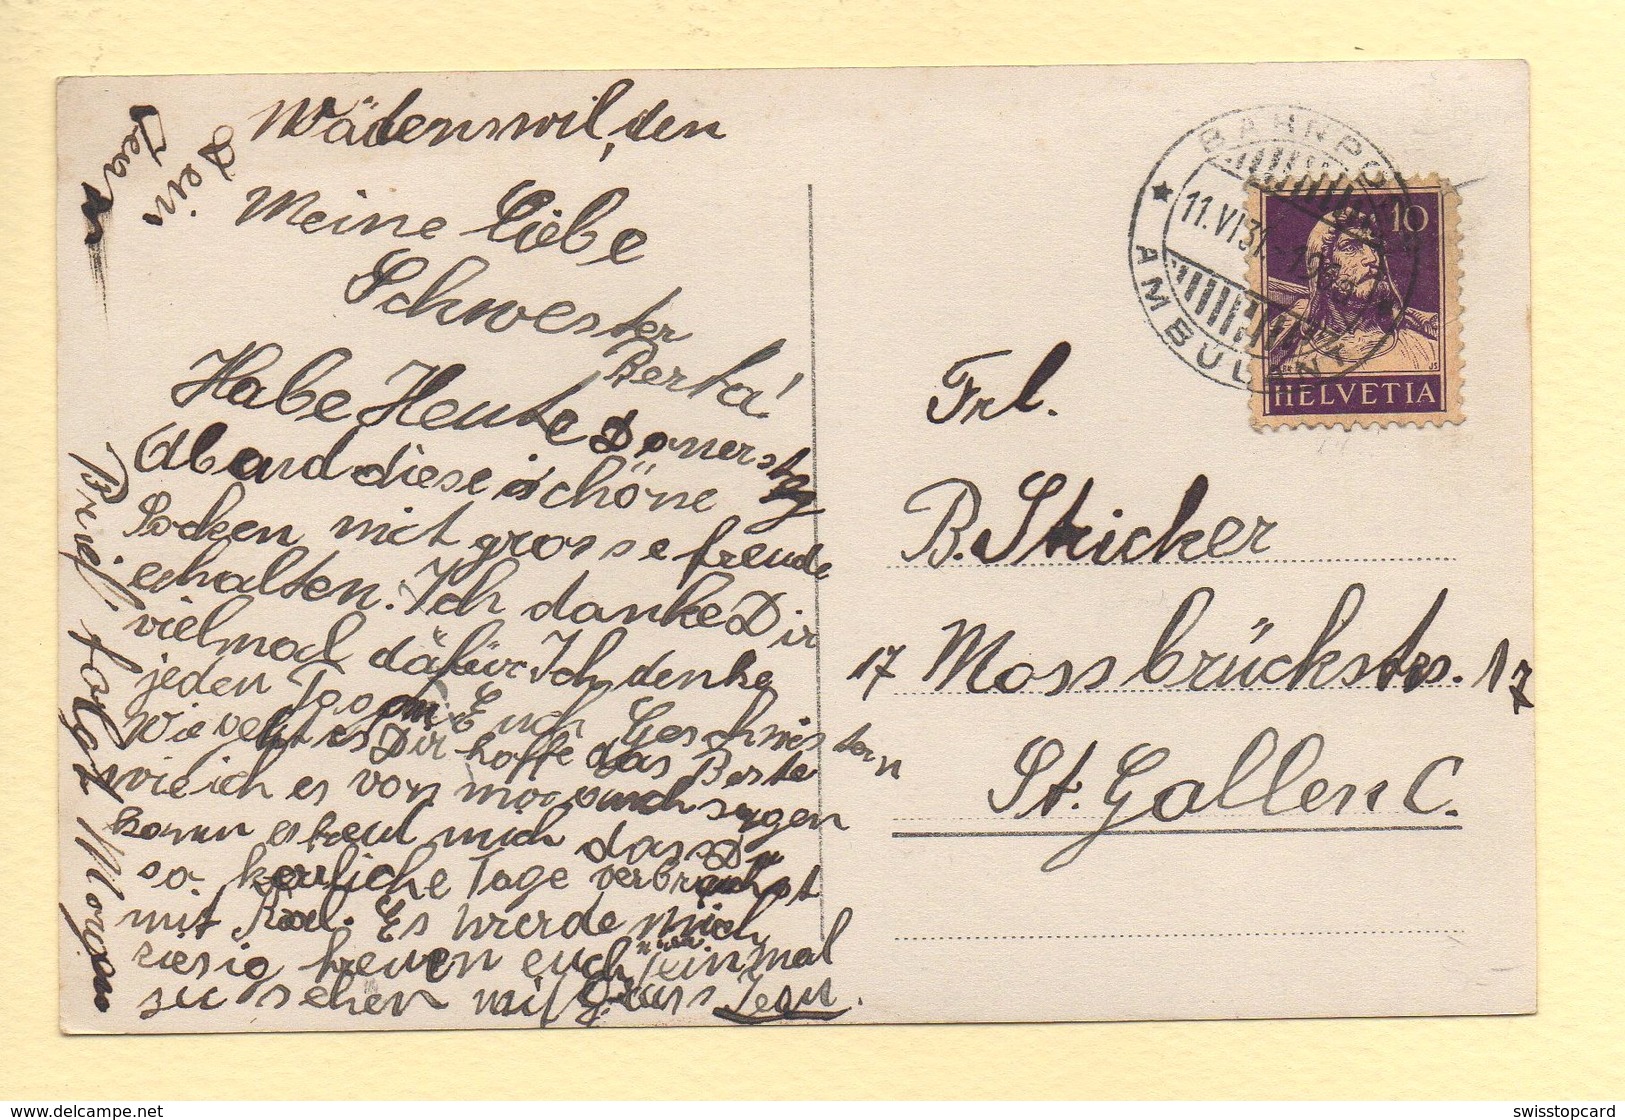 Wädenswil, den
Meine Liebe
Schwester
Berta!
Habe Heute Donerstag
Abend diese schöne
Socken mit grosse freude
erhalten. Ich danke Dir
vielmal däfür Ich denke
jeden Tag an Euch Geschwistern
Wie geht es Dir hoffe das Beste
wie ich es von mir auch sagen
kann es freut mich dass Du
so herrliche Tage verbrachst
mit . Es werde mich
riesig freuen euch wieder einmal
zu sehen mit Gruss Jean.
Brief folgt Morgen
Dein
Jean
BAHNPOST
11.VI 31
AMBULANT
10
HELVETIA
Frl.
B. Stricker
17 Moosbrückstrs. 17
St. Gallen C.
swisstopcard